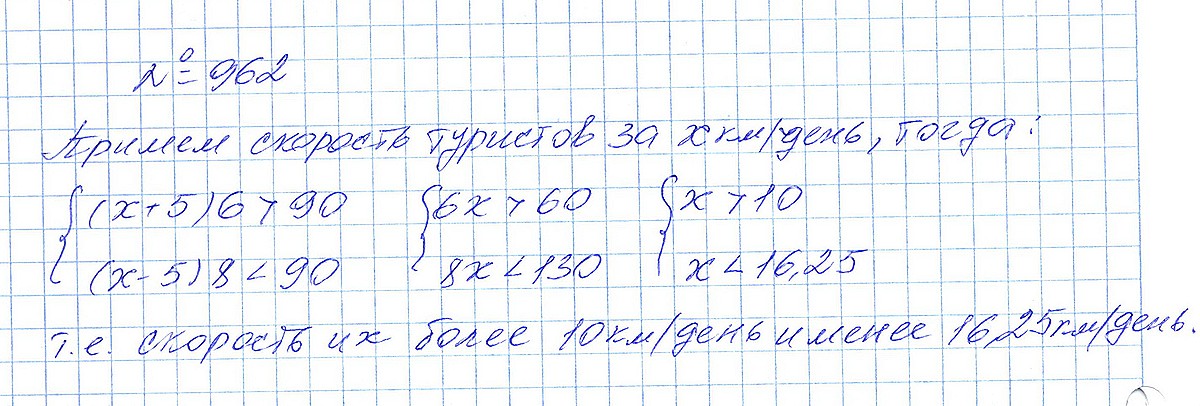 № 962
Примем скорость туристов за х км/день, тогда:
{(x+5)6>90 {6x>60 {x>10
(x-5)8<90 8x<130 x<16,25
т.е. скорость их более 10км/день и менее 16,25км/день.